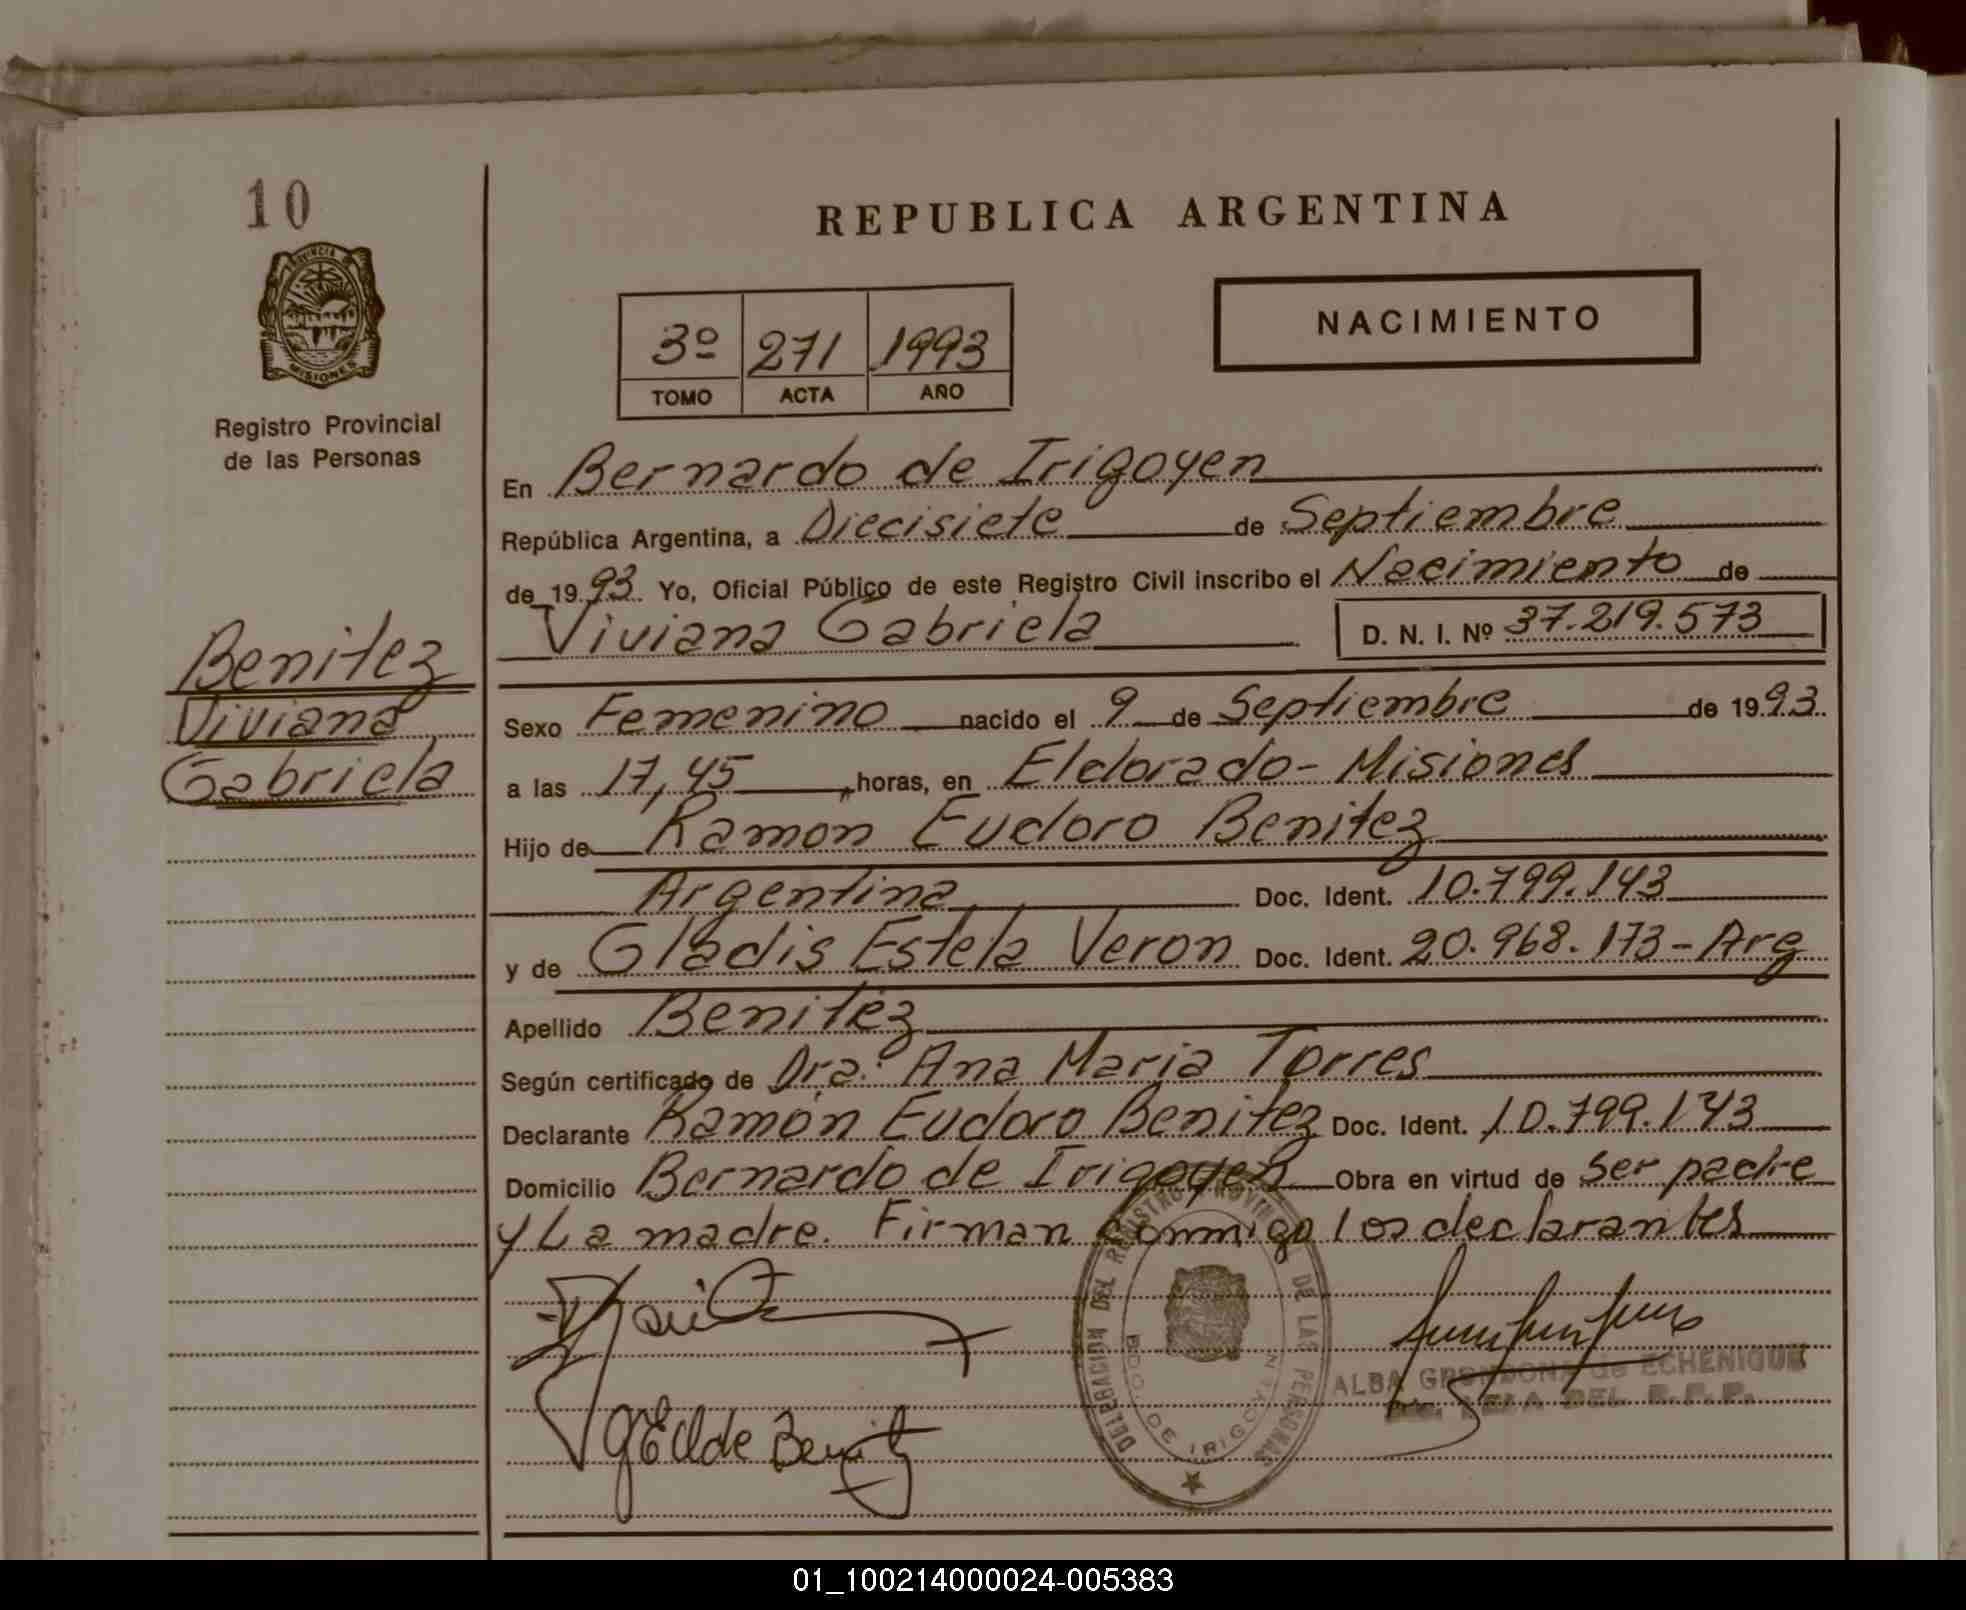 10
PROVINCIA DE
MISIONES
Registro Provincial
de las Personas
Benitez
Viviana
Gabriela
REPUBLICA ARGENTINA
3º 271 1993
TOMO ACTA AÑO
NACIMIENTO
En Bernardo de Irigoyen
República Argentina, a Diecisiete de Septiembre
de 1993 Yo, Oficial Público de este Registro Civil inscribo el Nacimiento de
Viviana Gabriela D. N. I. Nº 37.219.573
Sexo Femenino nacido el 9 de Septiembre de 1993
a las 17,45 horas, en Eldorado - Misiones
Hijo de Ramon Eudoro Benitez
Argentina Doc. Ident. 10.799.143
y de Gladis Estela Veron Doc. Ident. 20.968.173 - Arg
Apellido Benitez
Según certificado de Dra: Ana Maria Torres
Declarante Ramón Eudoro Benitez Doc. Ident. 10.799.143
Domicilio Bernardo de Irigoyen Obra en virtud de ser padre
y La madre. Firman conmigo los declarantes
DELEGACION DEL REGISTRO PROVINCIAL DE LAS PERSONAS
BDO. DE IRIGOYEN
ALBA GRONDONA de ECHENIGUE
DEL R.P.P.
de Benitez
01_100214000024-005383